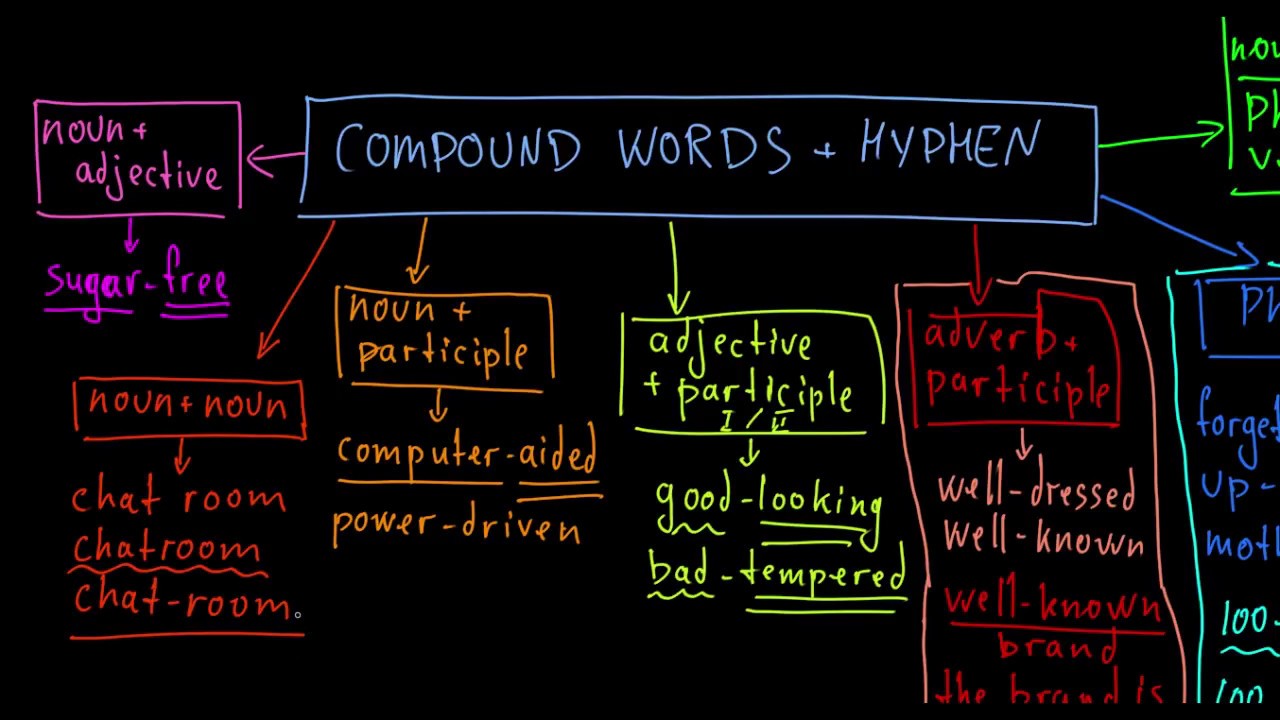 COMPOUND WORDS + HYPHEN
noun +
adjective
sugar-free
noun + noun
chat room
chatroom
chat-room
noun +
participle
computer-aided
power-driven
adjective
+ participle
I / II
good-looking
bad-tempered
adverb +
participle
well-dressed
well-known
well-known
brand
the brand is
up-
100-
100